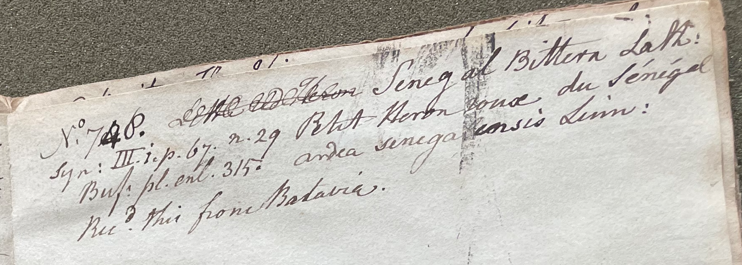 No. 748. Little red Heron Senegal Bittern Lath:
Syn: III. i. p. 67. n. 29 Petit Heron roux du Sénégal
Buf: pl. enl. 315. ardea senegalensis Linn:
Recd. this from Batavia.